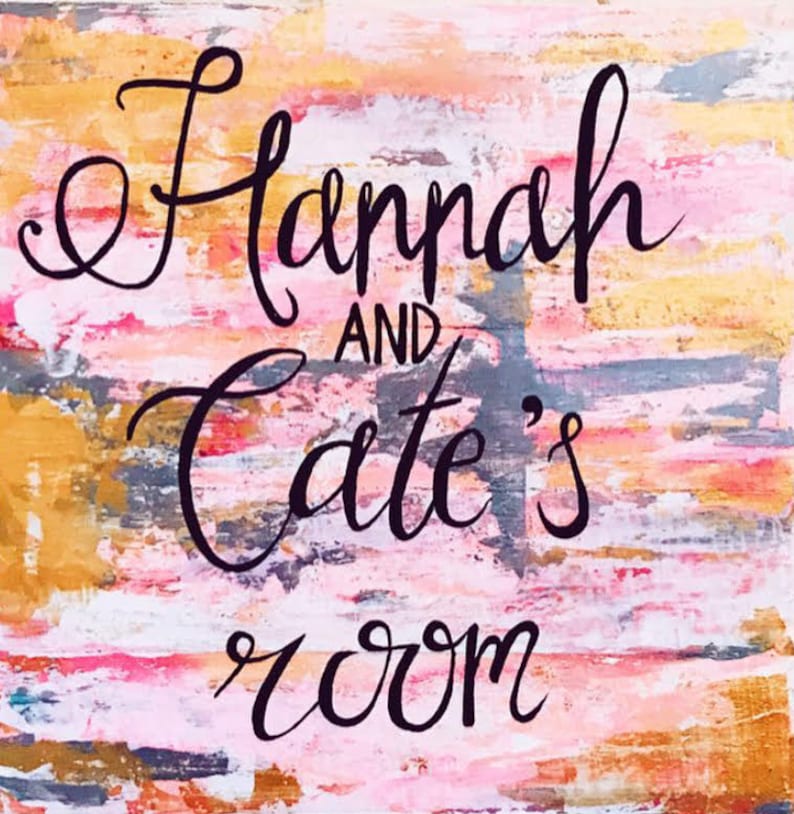 Hannah
AND
Cate's
room